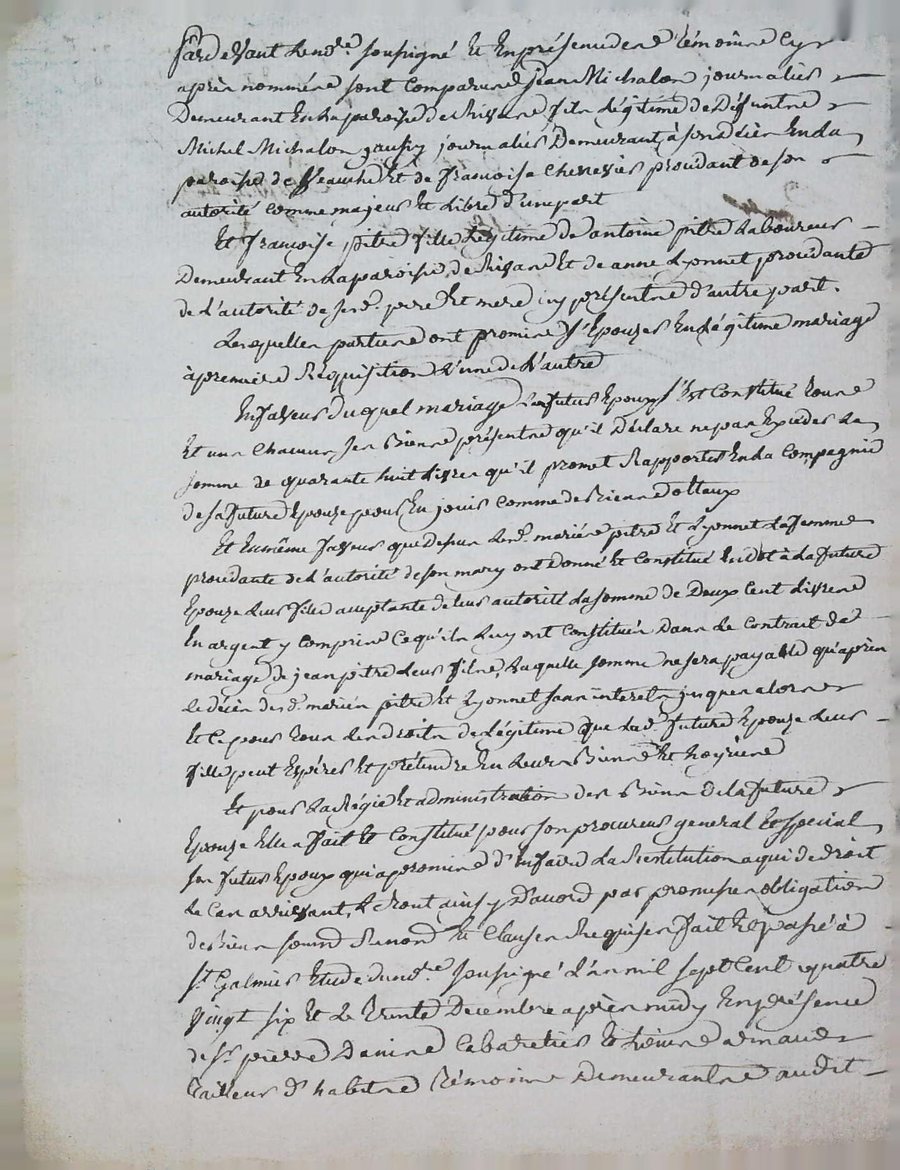 Pardevant le not.re soussigné Et En présence des Témoins Cy
après nommés sont Comparus Jean Michalon journalier
Demeurant En la paroisse de fils Légitime de Défunts
Michel Michalon journalier Demeurant à son décès En la
paroisse de Veauche Et de francoise procédant de son
autorité comme majeur Et Libre d'une part
Et francoise pitre fille Légitime de antoine pitre Laboureur
Demeurant En La paroisse de Et de anne Lyonnet procédante
de L'autorité de ses d. pere Et mere icy présents d'autre part.
Lesquelles parties ont promis s'Epouzer En Légitime mariage
à premiere Réquisition L'une de L'autre
En faveur Duquel mariage Le futur Epoux s'Est Constitué tous
Et un Chacuns ses Biens présents qu'il Déclare ne pas Excéder La
somme de quarante huit Livres qu'il promet Rapporter En la Compagnie
de sa future Epouze pour En jouir comme de Biens dotaux
Et En même faveur que Dessus Les d. mariés pitre Et Lyonnet La femme
procédante de L'autorité de son mary ont Donné Et Constitué En dot à La future
Epouze Leur fille acceptante de leur autorité La somme de Deux Cent Livres
En argent y compris Ce qu'ils Luy ont Constitués Dans Le Contrat de
mariage de jean pitre Leur fils, Laquelle somme ne sera payable qu'après
le décès des d. mariés pitre Et Lyonnet sans interets jusques alors
Et Ce pour tous Les droits de Légitime que La d. future Epouze Leur
fille peut Espérer Et prétendre En Leurs Biens Et hoyries
Et pour La Régie Et administration des Biens de la future
Epouze Elle a fait Et Constitué pour son procureur general Et special
son futur Epoux qui a promis d'En faire La Restitution a qui de droit
Le Cas arrivant, Le tout ainsy D'accord par promesses obligation
de Biens soumis Renon.s Et Clauses Requises fait Et passé à
St Galmier Etude du not.re soussigné L'an mil sept Cent quatre
vingt six Et Le Trente Decembre après midy En présence
de Sr. pierre Cabaretier Et Etienne arnaud
Tailleur d'habits Témoins Demeurants audit